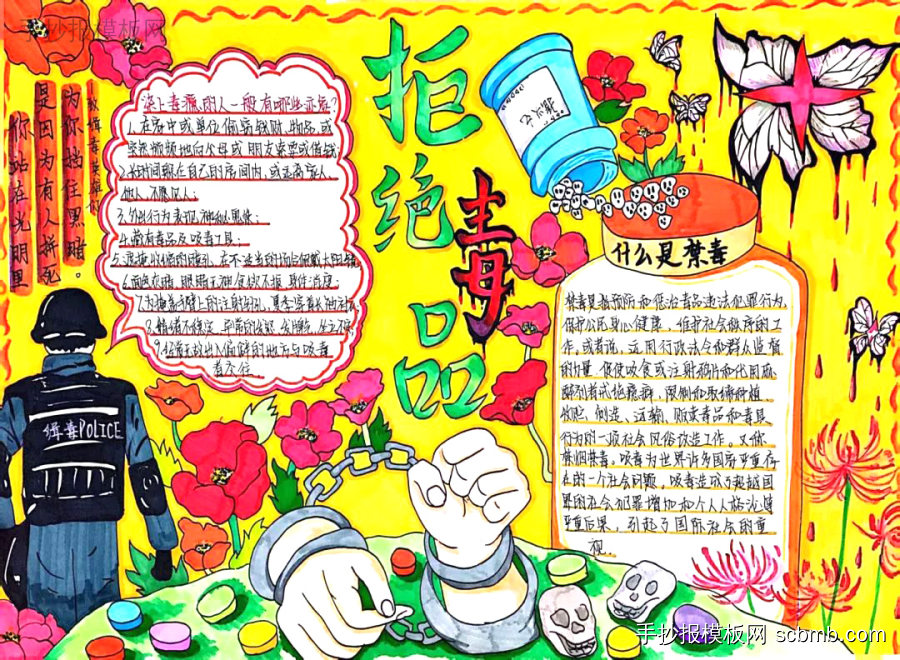 手抄报模板网
你站在光明里
是因为有人拼死
为你挡住黑暗。
—致缉毒英雄们
拒绝
毒
品
染上毒瘾的人一般有哪些示害?
1.在家中或单位偷窃钱财、物品,或
突然频频地向父母或朋友索要或借钱
2.长时间躲在自己的房间内,或远离家人
他人,不愿见人;
3.外出行为表现神秘鬼祟;
4.藏有毒品及吸毒工具;
5.遮掩收缩的瞳孔,在不适当的场合佩戴太阳镜
6.面色灰暗、眼睛无神、食欲不振、身体消瘦
7.为掩盖手臂上的注射针孔,夏季穿着长袖衬衫
8.情绪不稳定,异常的发怒、发脾气、坐立不安
9.经常无故出入偏僻的地方与吸毒
者交往
缉毒POLICE
什么是禁毒
禁毒是指预防和惩治毒品违法犯罪行为,
保护公民身心健康,维护社会秩序的工
作,或者说,运用行政法令和群众监督
的力量,促使吸食或注射
式者戒绝瘾癖,限制和取缔种植、
收贮、制造、运输、贩卖毒品和毒具
行为的一项社会风俗改造工作。又称
禁烟禁毒。吸毒为世界许多国家严重存
在的一个社会问题,吸毒造成了
的社会犯罪增加和个人人格沦
严重后果,引起了国际社会的重
视。
手抄报模板网 scbmb.com